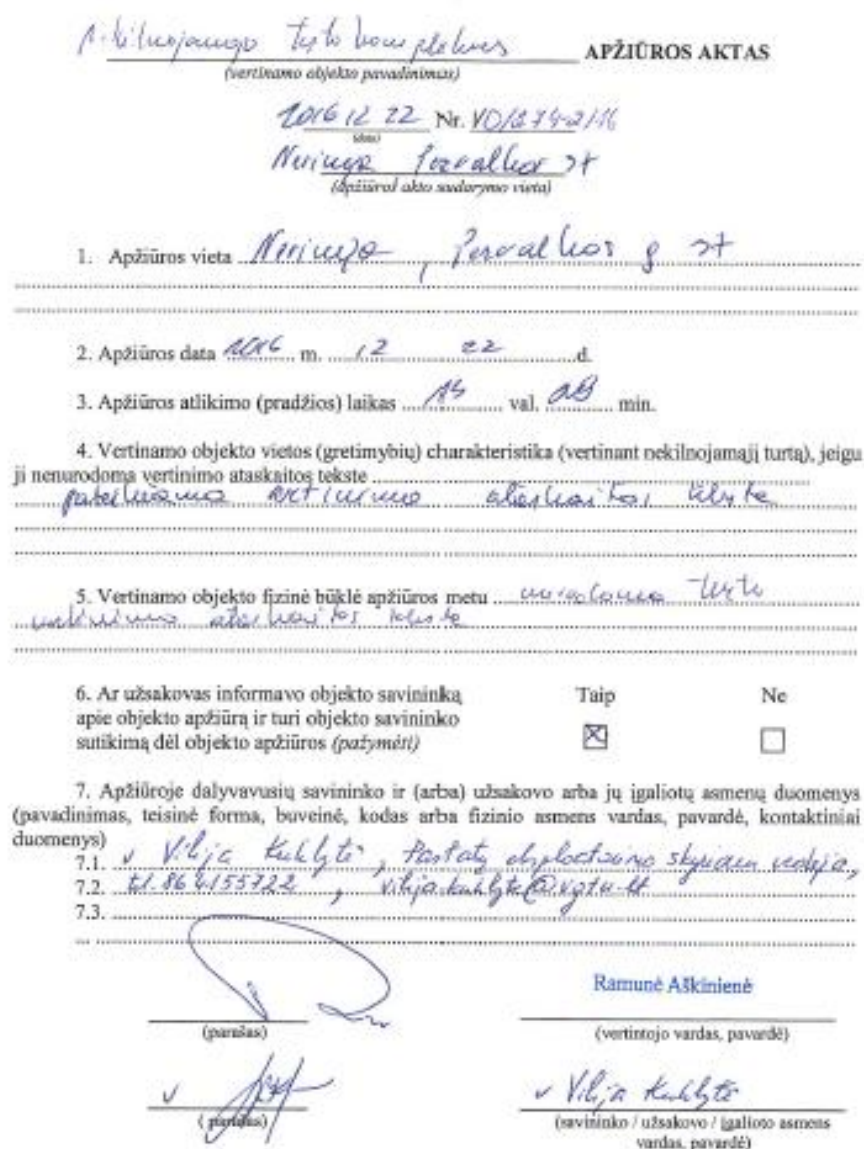 APŽIŪROS AKTAS
(vertinamo objekto pavadinimas)
2016 12 22 Nr.
(data)
Neringa
(apžiūros akto sudarymo vieta)
1. Apžiūros vieta Neringa,
2. Apžiūros data 2016 m. 12 22 d.
3. Apžiūros atlikimo (pradžios) laikas val. min.
4. Vertinamo objekto vietos (gretimybių) charakteristika (vertinant nekilnojamąjį turtą), jeigu
ji nenurodoma vertinimo ataskaitos tekste
vertinimo ataskaitos
5. Vertinamo objekto fizinė būklė apžiūros metu turto
vertinimo ataskaitos tekste
6. Ar užsakovas informavo objekto savininką Taip Ne
apie objekto apžiūrą ir turi objekto savininko
sutikimą dėl objekto apžiūros (pažymėti)
7. Apžiūroje dalyvavusių savininko ir (arba) užsakovo arba jų įgaliotų asmenų duomenys
(pavadinimas, teisinė forma, buveinė, kodas arba fizinio asmens vardas, pavardė, kontaktiniai
duomenys)
7.1. v Vilija Kuklytė, Pastatų skyriaus vedėja,
7.2. tel. 864155722, vilija.kuklyte@vgtu.lt
7.3.
Ramunė Aškinienė
(parašas) (vertintojo vardas, pavardė)
v v Vilija Kuklytė
(parašas) (savininko / užsakovo / įgalioto asmens
vardas, pavardė)